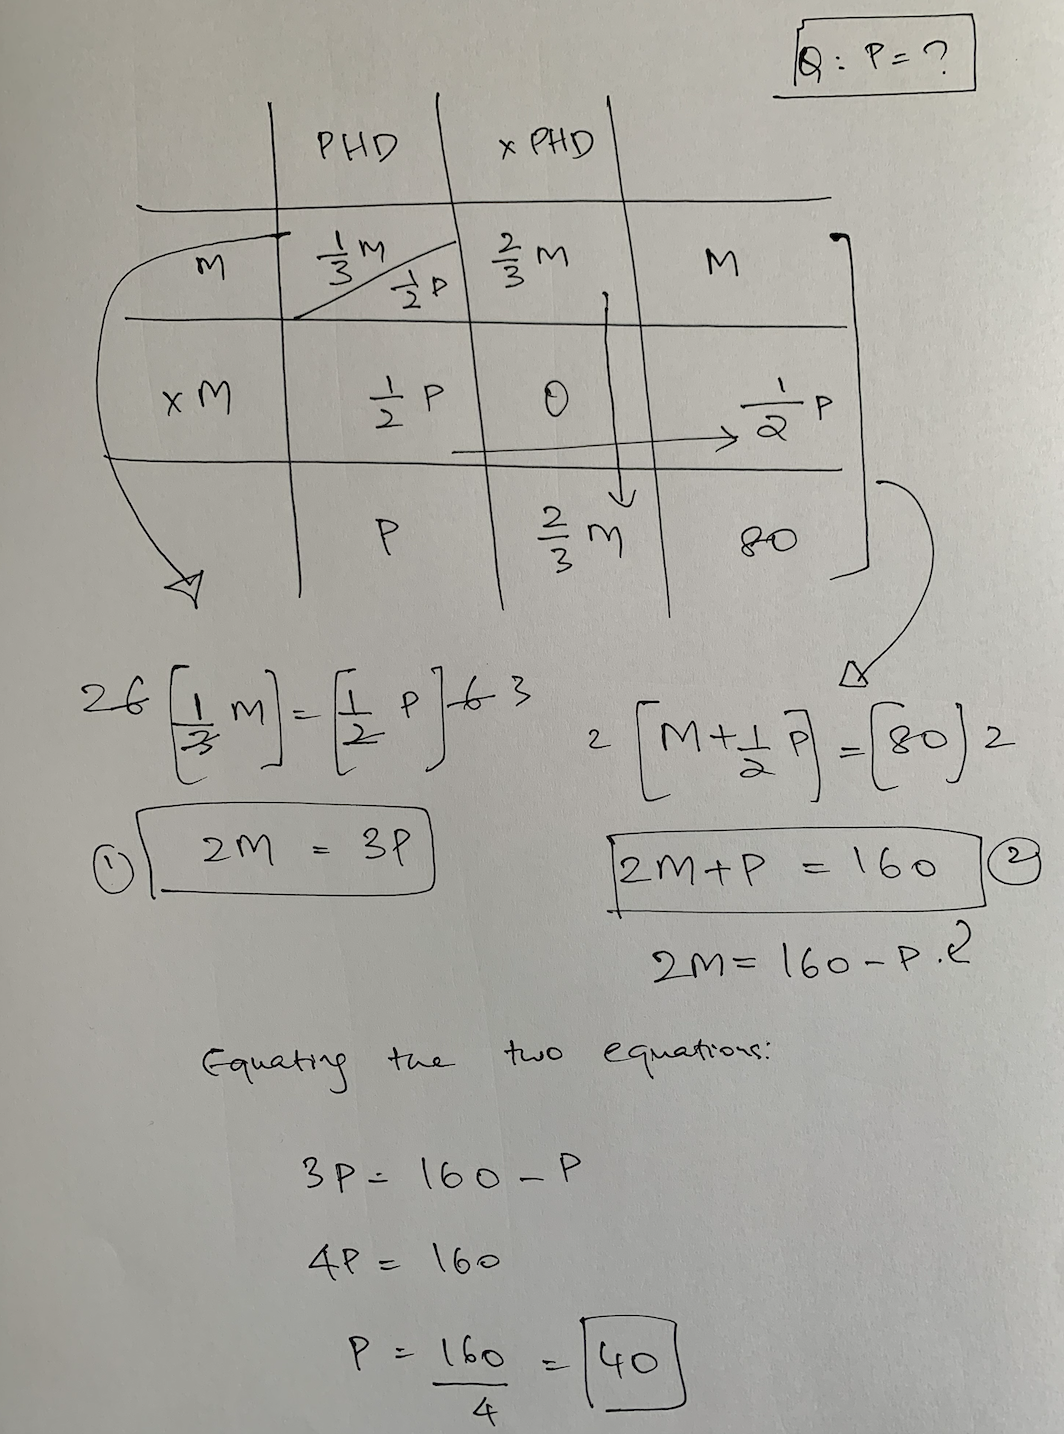 Q: P = ?
PHD x PHD
M 1/3 M 1/2 P 2/3 M M
x M 1/2 P 0 1/2 P
P 2/3 M 80
2 6 [1/3 M] = [1/2 P] 6 3
2 [M + 1/2 P] = [80] 2
① 2M = 3P
2M + P = 160 ②
2M = 160 - P .
Equating the two equations:
3P = 160 - P
4P = 160
P = 160/4 = 40